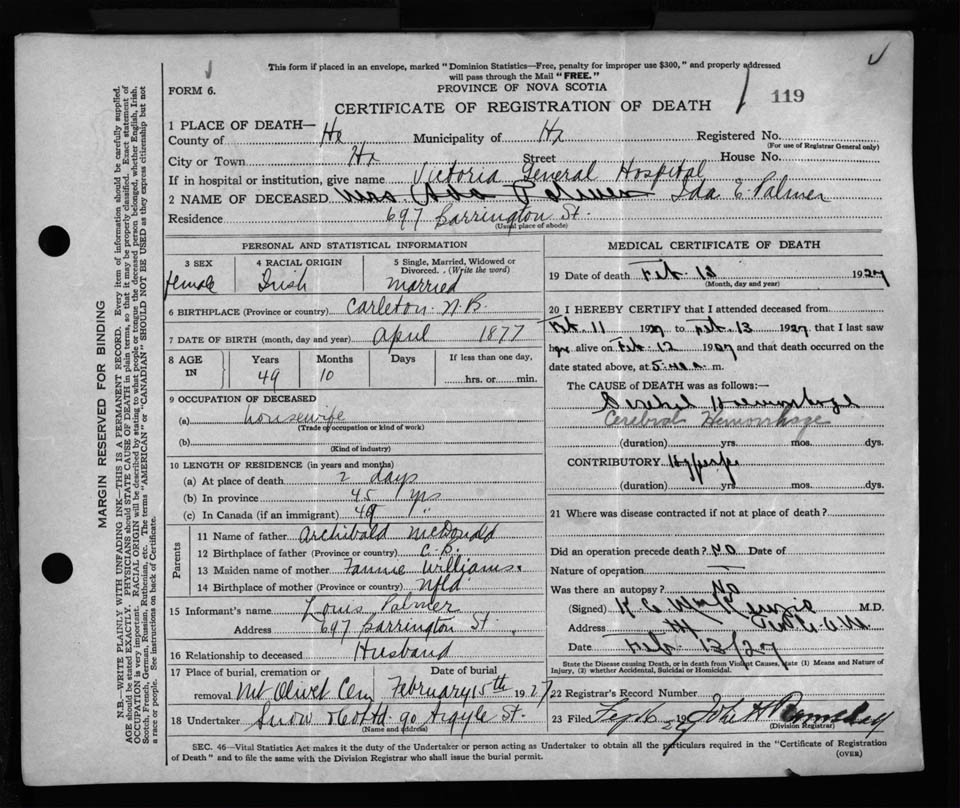 This form if placed in an envelope, marked "Dominion Statistics—Free, penalty for improper use $300," and properly addressed
will pass through the Mail "FREE."
FORM 6.
PROVINCE OF NOVA SCOTIA
CERTIFICATE OF REGISTRATION OF DEATH
119
1 PLACE OF DEATH—
County of Hx Municipality of Hx Registered No.
(For use of Registrar General only)
City or Town Hx Street House No.
If in hospital or institution, give name Victoria General Hospital
2 NAME OF DECEASED Mrs (Ada Palmer Ida E. Palmer
Residence 697 Barrington St.
(Usual place of abode)
PERSONAL AND STATISTICAL INFORMATION
3 SEX
female
4 RACIAL ORIGIN
Irish
5 Single, Married, Widowed or
Divorced. (Write the word)
married
6 BIRTHPLACE (Province or country) Carleton N.B.
7 DATE OF BIRTH (month, day and year) April 1877
8 AGE
IN
Years
49
Months
10
Days
If less than one day,
hrs. or min.
9 OCCUPATION OF DECEASED
(a) housewife
(Trade or occupation or kind of work)
(b)
(Kind of industry)
10 LENGTH OF RESIDENCE (in years and months)
(a) At place of death 2 days
(b) In province 45 yrs
(c) In Canada (if an immigrant) 49 "
Parents
11 Name of father Archibald McDonald
12 Birthplace of father (Province or country) C.B.
13 Maiden name of mother Fannie Williams.
14 Birthplace of mother (Province or country) Nfld.
15 Informant's name Louis Palmer
Address 697 Barrington St.
16 Relationship to deceased Husband
17 Place of burial, cremation or Date of burial
removal Mt Olivet Cem February 15th 1927
18 Undertaker Snow & Co Ltd. 90 Argyle St.
(Name and address)
MEDICAL CERTIFICATE OF DEATH
19 Date of death Feb. 13 1927
(Month, day and year)
20 I HEREBY CERTIFY that I attended deceased from
Feb. 11 1927 to Feb. 13 1927 that I last saw
her alive on Feb. 12 1927 and that death occurred on the
date stated above, at 5 a. m.
The CAUSE OF DEATH was as follows:—
Cerebral Haemorrhage
Cerebral Hemorrhage
(duration) yrs. mos. dys.
CONTRIBUTORY
(duration) yrs. mos. dys.
21 Where was disease contracted if not at place of death?
Did an operation precede death? NO Date of
Nature of operation
Was there an autopsy? NO
(Signed) M.D.
Address
Date Feb. 13/27
State the Disease causing Death, or in death from Violent Causes, state (1) Means and Nature of
Injury, (2) whether Accidental, Suicidal or Homicidal.
22 Registrar's Record Number
23 Filed 19 John A
(Division Registrar)
SEC. 46—Vital Statistics Act makes it the duty of the Undertaker or person acting as Undertaker to obtain all the particulars required in the "Certificate of Registration
of Death" and to file the same with the Division Registrar who shall issue the burial permit.
(OVER)
MARGIN RESERVED FOR BINDING
N.B.—WRITE PLAINLY WITH UNFADING INK—THIS IS A PERMANENT RECORD. Every item of information should be carefully supplied.
AGE should be stated EXACTLY. PHYSICIANS should STATE CAUSE OF DEATH in plain terms, so that it may be properly classified. Exact statement of
OCCUPATION is very important. RACIAL ORIGIN will be described by stating to what people or tongue the deceased person belonged, whether English, Irish,
Scotch, French, German, Russian, Ruthenian, etc. The terms "AMERICAN" or "CANADIAN" SHOULD NOT BE USED as they express citizenship but not
a race or people. See instructions on back of Certificate.